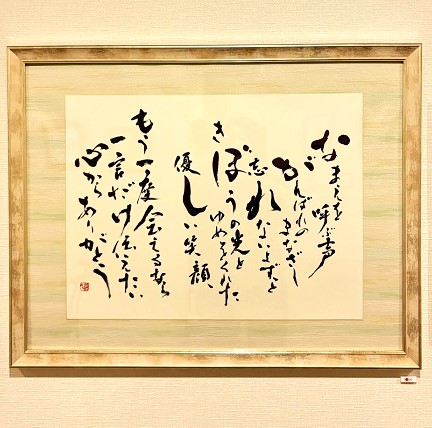 なまえを呼ぶ声
がんばれのまなざし
忘れないよずっと
きぼうの光とゆめをくれた
優しい笑顔
もう一度会えるなら
一言だけ伝えたい
心からありがとう